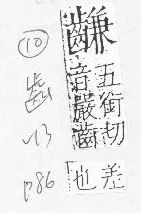 五銜切
音嚴齒
差
也
⑩
齒
13
P86